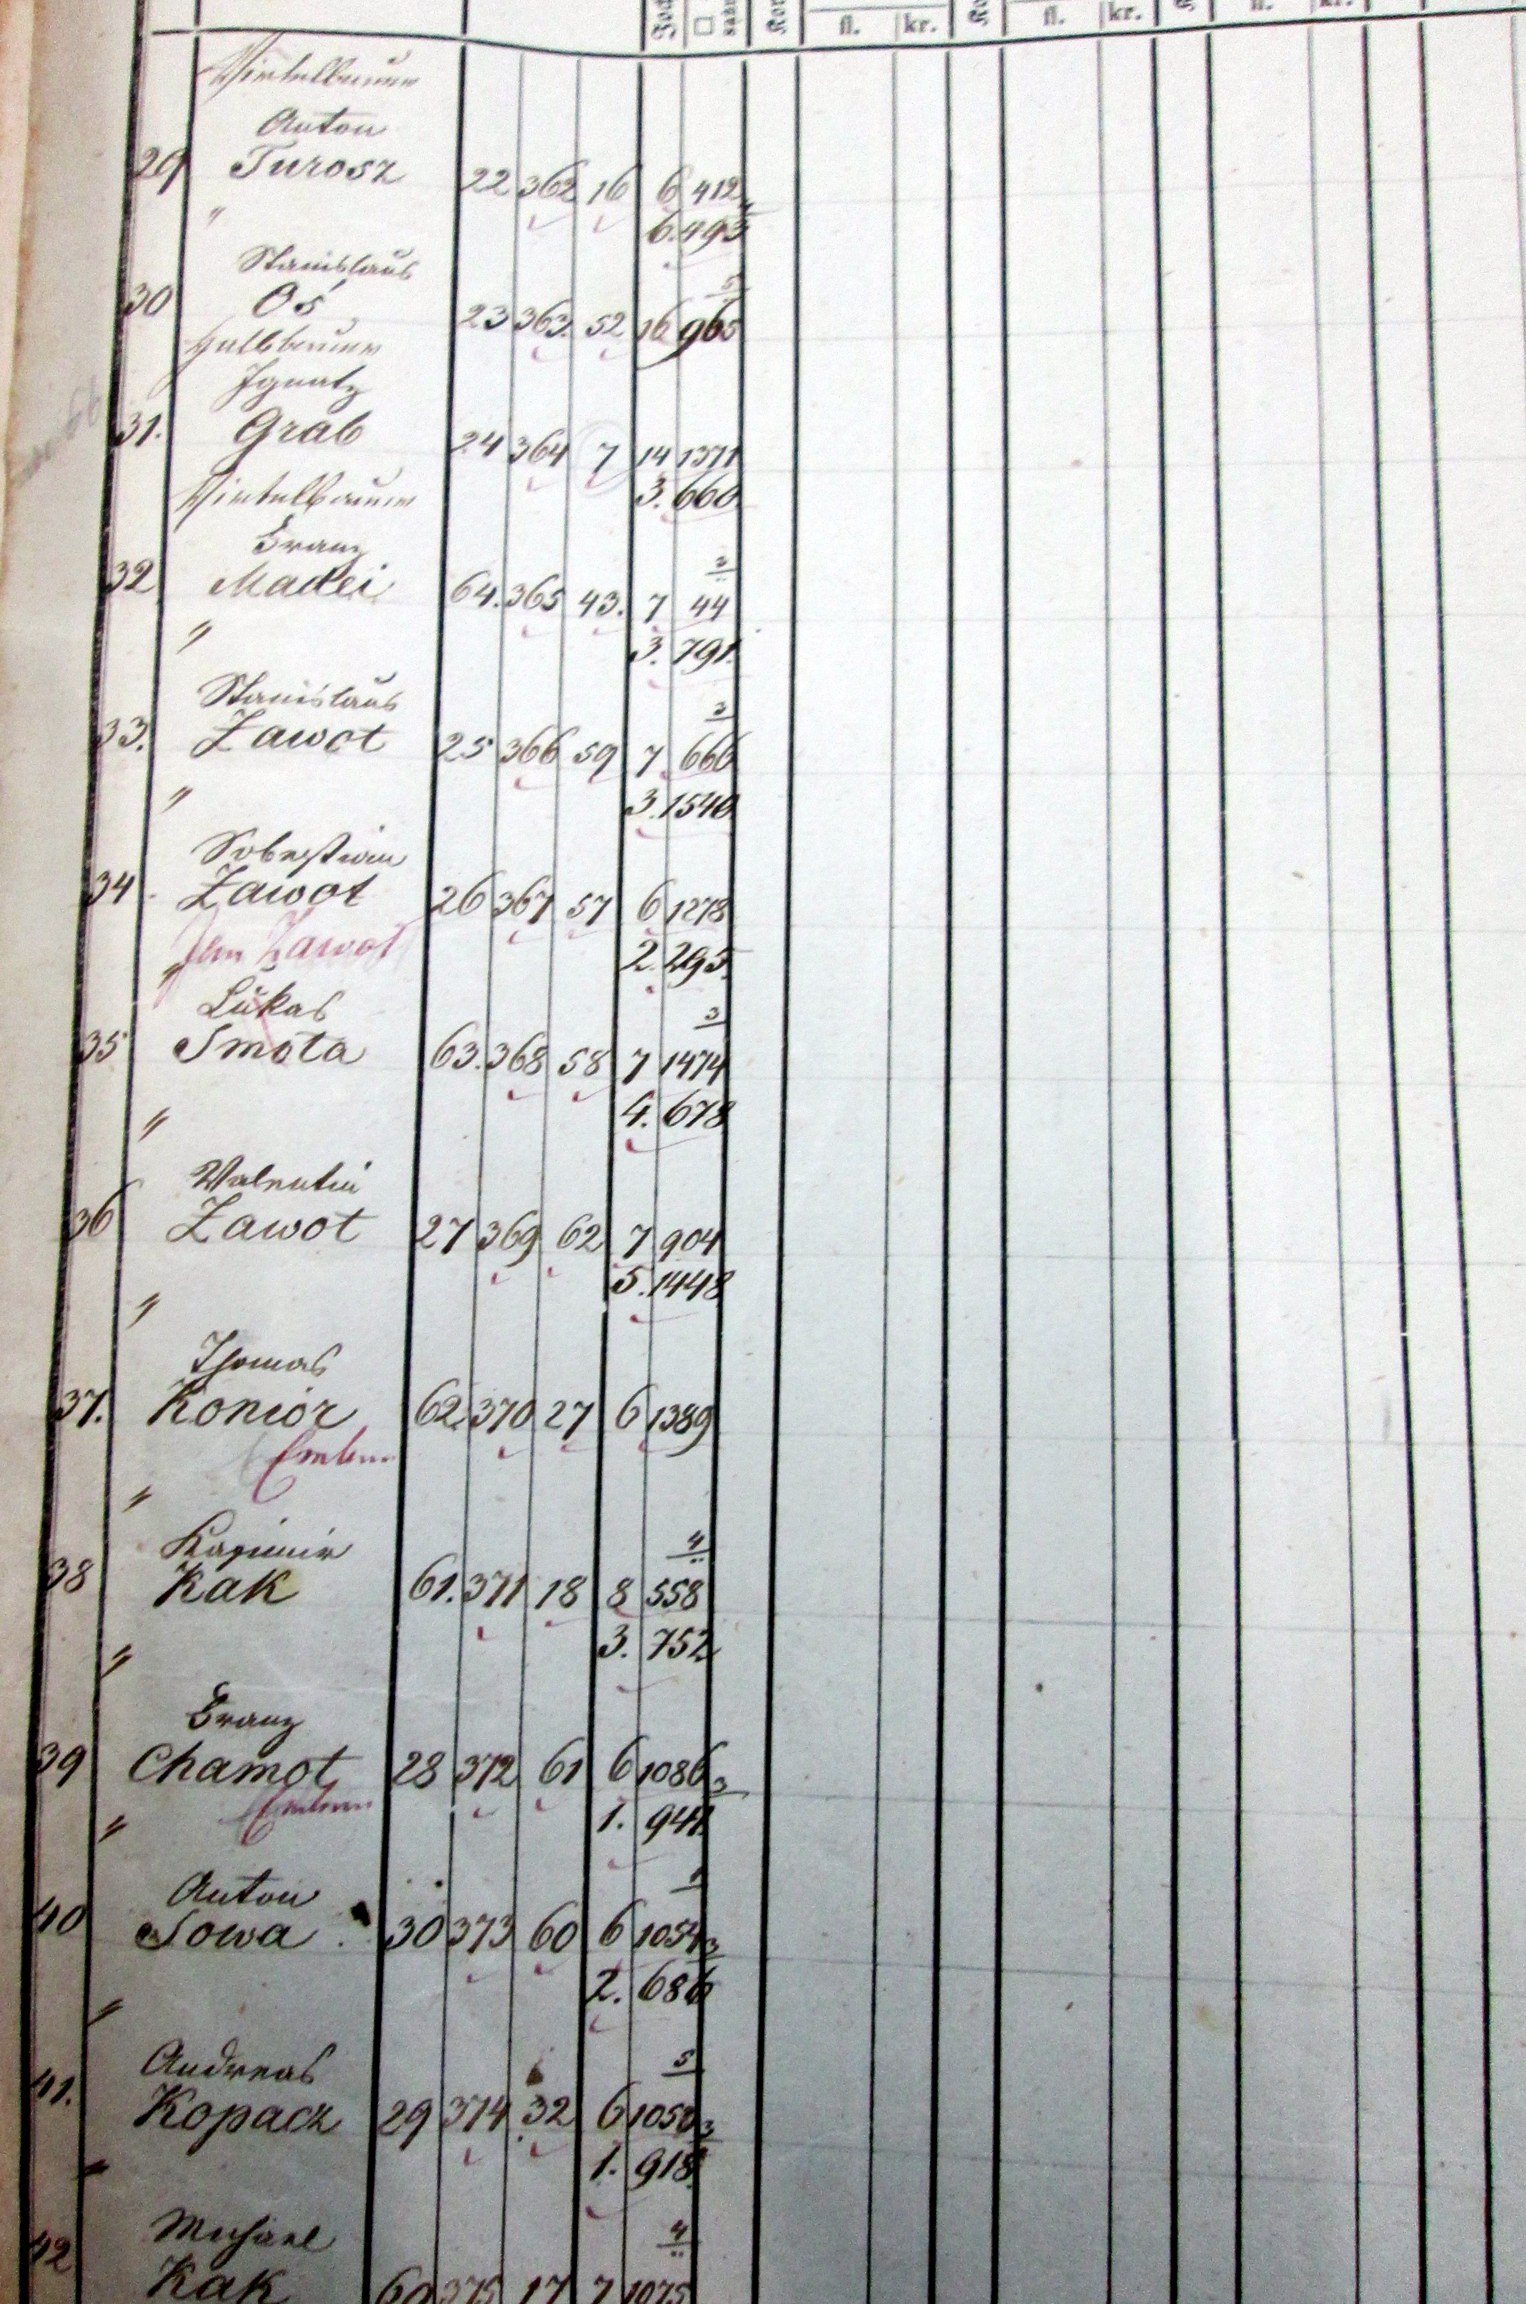 fl. kr. fl. kr. fl. kr.
Viertelbauer
Anton
29 Turosz 22 362 16 6 412
" 6. 493
Stanislaus
5
30 Oś 23 363. 52 16 965
Halbbauer
Ignatz
31. Grab 24 364 7 14 1371
Viertelbauer 3. 660
Franz
3
32 Madei 64. 365 43. 7 44
" 3. 791.
Stanislaus
3
33. Zawot 25 366 59 7 666
" 3. 1540
Sebastian
34 Zawot 26 367 57 6 1278
Jan Zawot 2. 295.
"
Lukas
3
35 Smota 63. 368 58 7 1474
" 4. 678
Valentin
36 Zawot 27 369 62 7 904
5. 1448
"
Thomas
37. Konior 62 370 27 6 1389
"
Kazimir
4
38 Kak 61. 371 18 8 558
3. 752
"
Franz
39 Chamot 28 372 61 6 1086 3
" 1. 941.
Anton
40 Sowa 30 373 60 6 1054 3
2. 686
"
Andreas
5
41. Kopacz 29 374 32 6 1050 3
1. 918.
"
Michael
4
42 Kak 60 375 17 7 1075